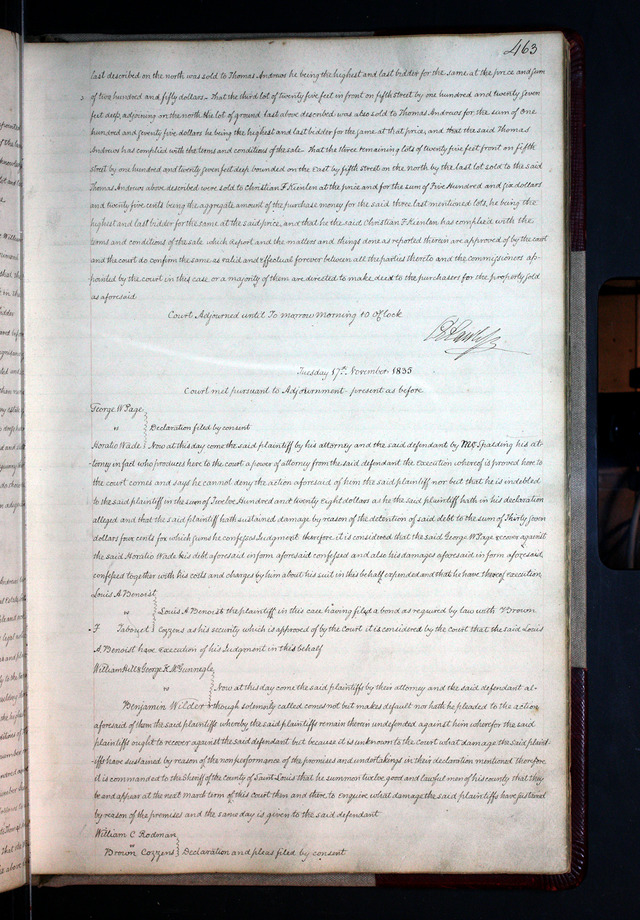 463
last described on the north was sold to Thomas Andrews he being the highest and last bidder for the same at the price and sum
of two hundred and fifty dollars - That the third lot of twenty five feet in front on fifth street by one hundred and twenty seven
feet deep, adjoining on the north the lot of ground last above described was also sold to Thomas Andrews for the sum of One
hundred and seventy five dollars he being the highest and last bidder for the same at that price, and that the said Thomas
Andrews has complied with the terms and conditions of the sale - That the three remaining lots of twenty five feet front on fifth
street by one hundred and twenty seven feet deep bounded on the East by fifth street on the north by the last lot sold to the said
Thomas Andrews above described were sold to Christian F Kienlen at the price and for the sum of Five Hundred and six dollars
and twenty five cents being the aggregate amount of the purchase money for the said three last mentioned lots, he being the
highest and last bidder for the same at the said price, and that he the said Christian F Kienlen has complied with the
terms and conditions of the sale which report and the matters and things done as reported therein are approved of by the court
and the court do confirm the same as valid and effectual forever between all the parties thereto and the commissioners ap-
pointed by the court in this case or a majority of them are directed to make deed to the purchasers for the property sold
as aforesaid
Court Adjourned until To morrow Morning 10 Oclock
Tuesday 17th November 1835
Court met pursuant to Adjournment present as before
George W Page
vs
Declaration filed by consent
Horatio Wade
Now at this day come the said plaintiff by his attorney and the said defendant by Mr Spalding his at-
torney in fact who produces here to the court a power of attorney from the said defendant the Execution whereof is proved here to
the court comes and says he cannot deny the action aforesaid of him the said plaintiff nor but that he is indebted
to the said plaintiff in the sum of Twelve Hundred and twenty eight dollars as he the said plaintiff hath in his declaration
alleged and that the said plaintiff hath sustained damage by reason of the detention of said debt to the sum of Thirty seven
dollars four cents for which sums he confesses Judgment therefore it is considered that the said George W Page recover against
the said Horatio Wade his debt aforesaid in form aforesaid confessed and also his damages aforesaid in form aforesaid
confessed together with his costs and charges by him about his suit in this behalf expended and that he have thereof execution
Louis A Benoist
vs
Louis A Benoist the plaintiff in this case having filed a bond as required by law with Brown
F Taboyet
Cozzens as his security which is approved of by the Court it is considered by the court that the said Louis
A Benoist have execution of his Judgment in this behalf
William Hill & George K McGunnegle
vs
Now at this day come the said plaintiffs by their attorney and the said defendant al-
Benjamin Wilder
though solemnly called comes not but makes default nor hath he pleaded to the action
aforesaid of them the said plaintiffs whereby the said plaintiffs remain therein undefended against him wherefor the said
plaintiffs ought to recover against the said defendant but because it is unknown to the court what damage the said plaint-
iffs have sustained by reason of the nonperformance of the promises and undertakings in their declaration mentioned Therefore
it is commanded to the Sheriff of the county of Saint Louis that he summon twelve good and lawful men of his county that they
be and appear at the next march term of this court then and there to enquire what damage the said plaintiffs have sustained
by reason of the premises and the same day is given to the said defendant
William C Rodman
vs
Brown Cozzens
Declaration and pleas filed by consent